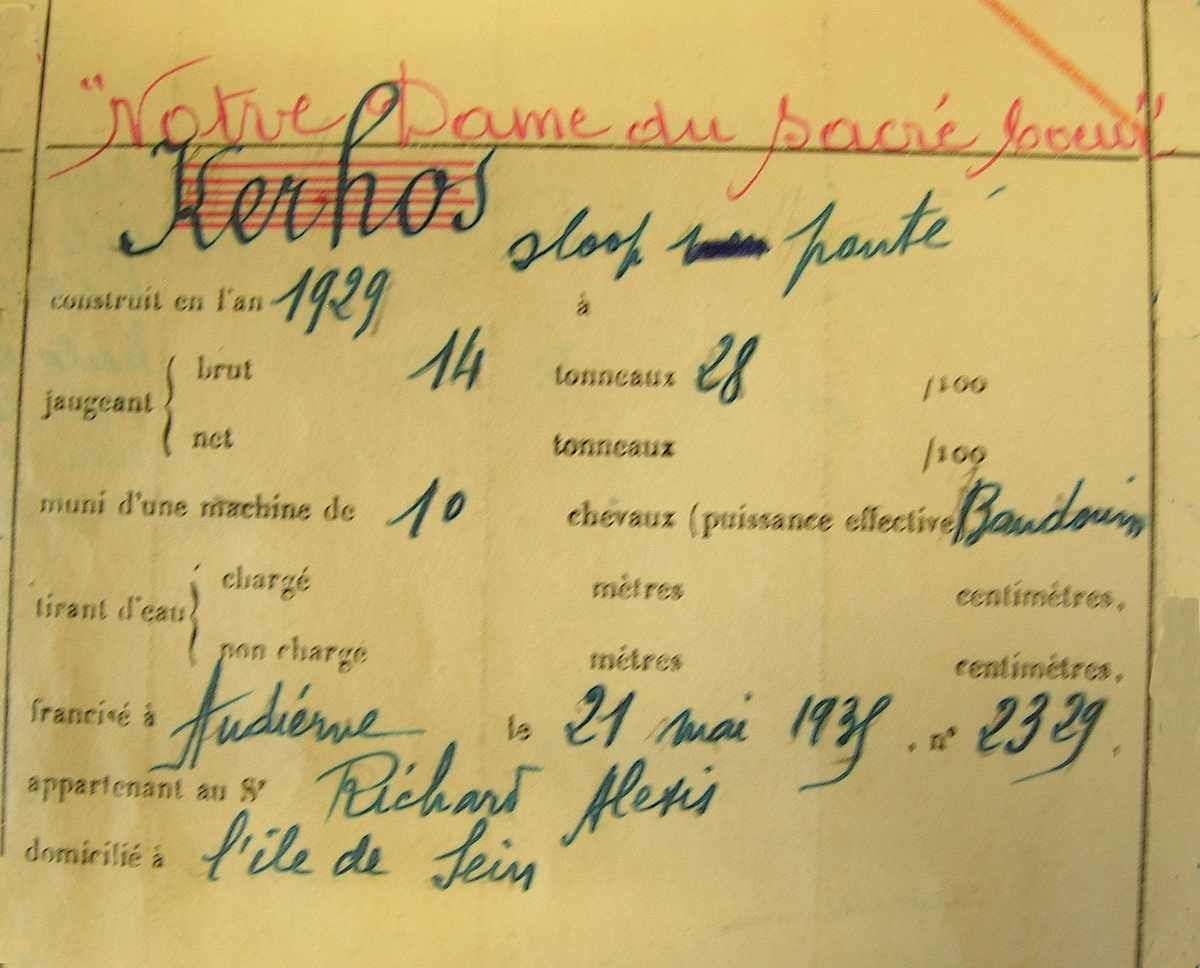 "Notre Dame du sacré Coeur"
Kerhos sloop ponté
construit en l'an 1929 à
jaugeant { brut 14 tonneaux 28 /100
net tonneaux /100
muni d'une machine de 10 chevaux (puissance effective) Baudouin
tirant d'eau { chargé mètres centimètres.
non chargé mètres centimètres.
francisé à Audierne le 21 mai 1935 . n° 2329 .
appartenant au Sr Richard Alexis
domicilié à l'île de Sein